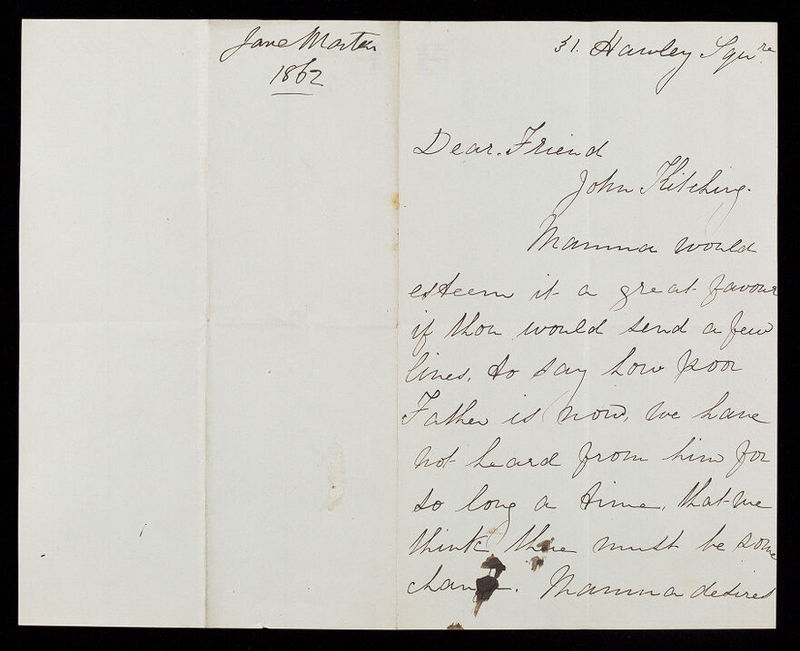 Jane Marten
1862
31. Hawley Squre.
Dear. Friend
John Kitching.
Mamma would
esteem it a great favour
if thou would send a few
lines, to say how poor
Father is now, we have
not heard from him for
so long a time, that we
think there must be some
change. Mamma desires